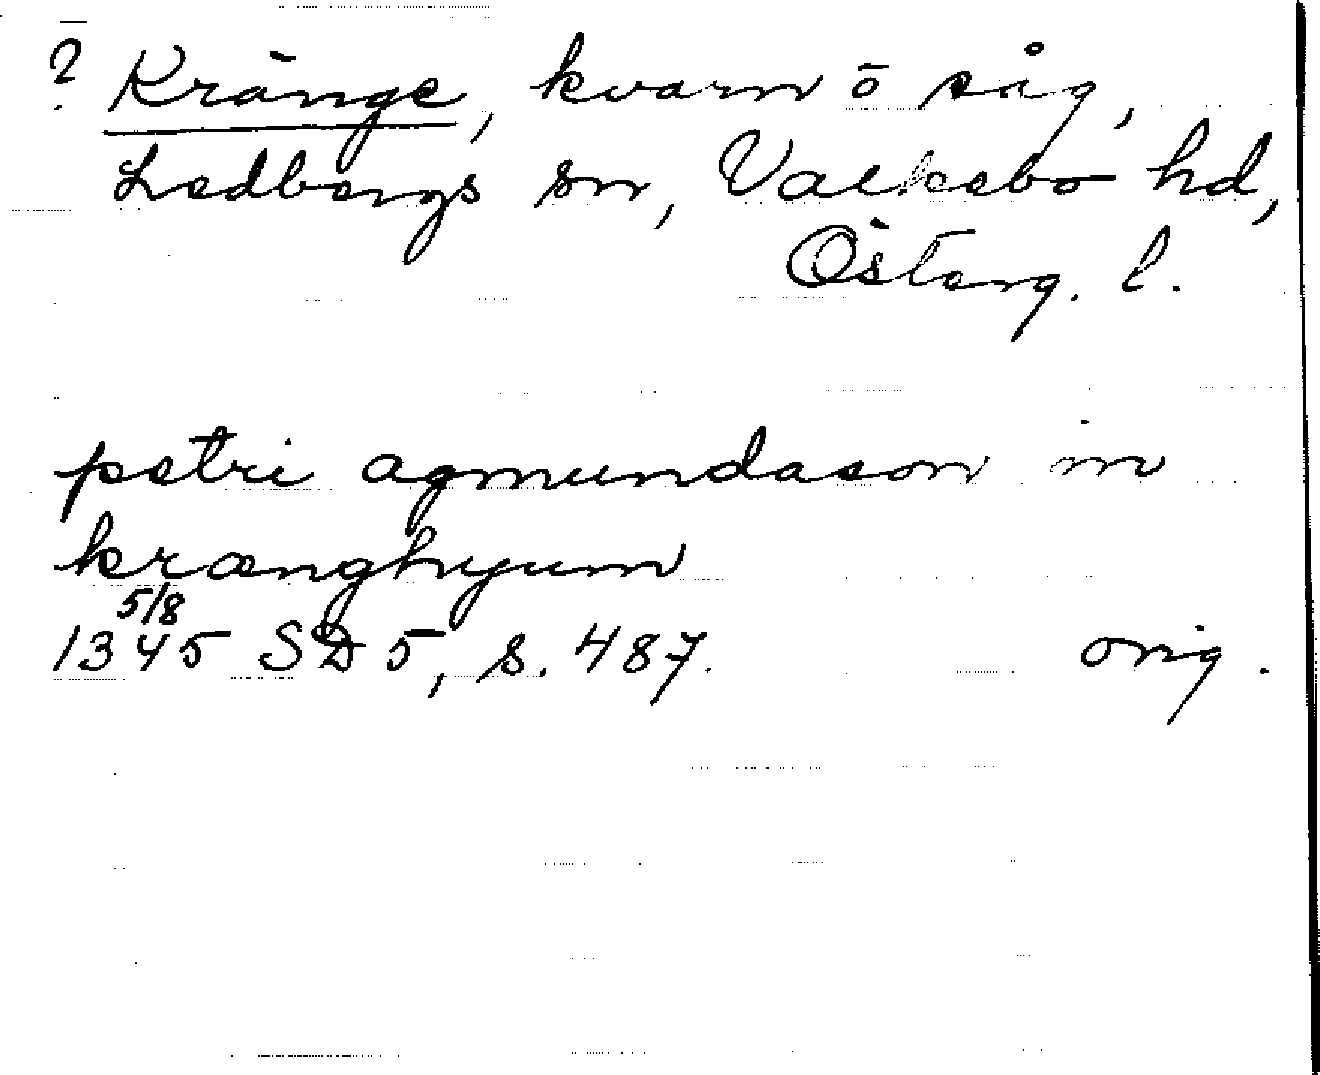 ? Kränge, kvarn o såg,
Ledbergs sn, Valkebo hd,
Österg. l.
petri agmundason in
krænghyum
5/8
1345 SD 5, s. 487. orig.